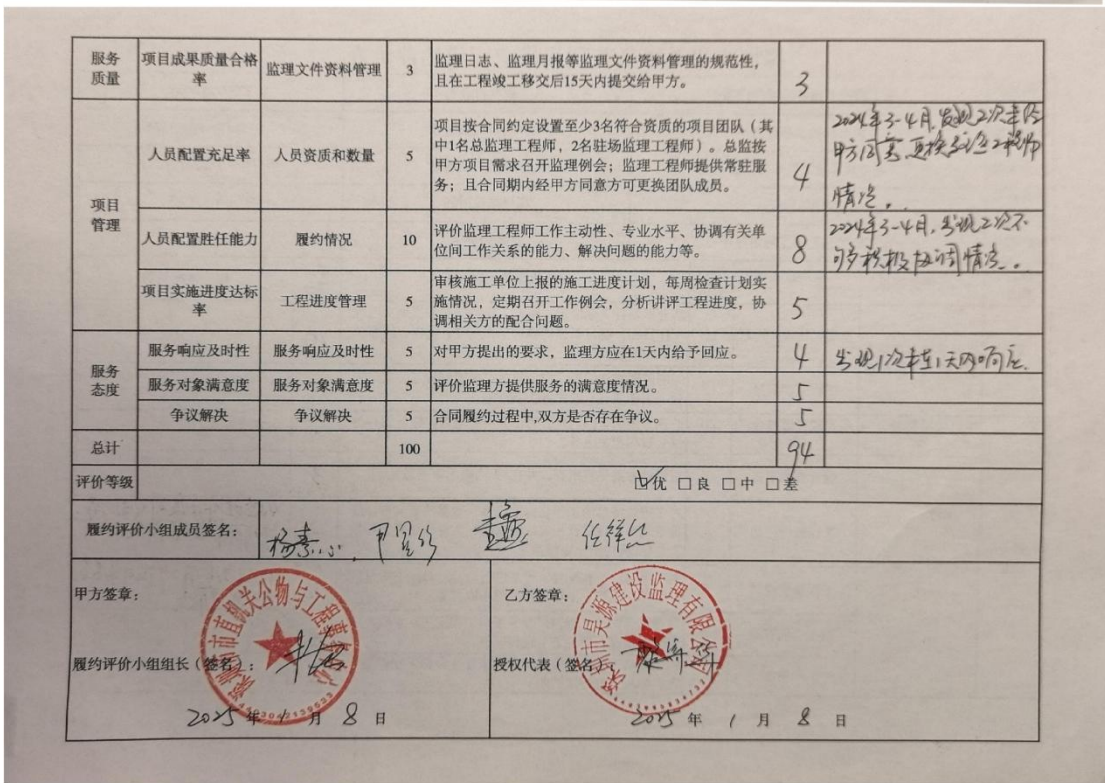 服务质量 项目成果质量合格率 监理文件资料管理 3 监理日志、监理月报等监理文件资料管理的规范性，
且在工程竣工移交后15天内提交给甲方。 3
项目管理 人员配置充足率 人员资质和数量 5 项目按合同约定设置至少3名符合资质的项目团队（其
中1名总监理工程师，2名驻场监理工程师）。总监按
甲方项目需求召开监理例会；监理工程师提供常驻服
务；且合同期内经甲方同意方可更换团队成员。 4
2024年3-4月,发现2次未经
甲方同意更换 工程师
情况。
人员配置胜任能力 履约情况 10 评价监理工程师工作主动性、专业水平、协调有关单
位间工作关系的能力、解决问题的能力等。 8
2024年3-4月,发现2次不
够积极协调情况。
项目实施进度达标率 工程进度管理 5 审核施工单位上报的施工进度计划，每周检查计划实
施情况，定期召开工作例会，分析讲评工程进度，协
调相关方的配合问题。 5
服务态度 服务响应及时性 服务响应及时性 5 对甲方提出的要求，监理方应在1天内给予回应。 4 发现1次未在1天内响应.
服务对象满意度 服务对象满意度 5 评价监理方提供服务的满意度情况。 5
争议解决 争议解决 5 合同履约过程中,双方是否存在争议。 5
总计 100 94
评价等级 ☑优 □良 □中 □差
履约评价小组成员签名：
甲方签章： 乙方签章：
深圳市直机关公物与工程事务中心
深圳市昊源建设监理有限公司
履约评价小组组长（签名）： 授权代表（签名）：
2025 年 1 月 8 日 2025 年 1 月 8 日